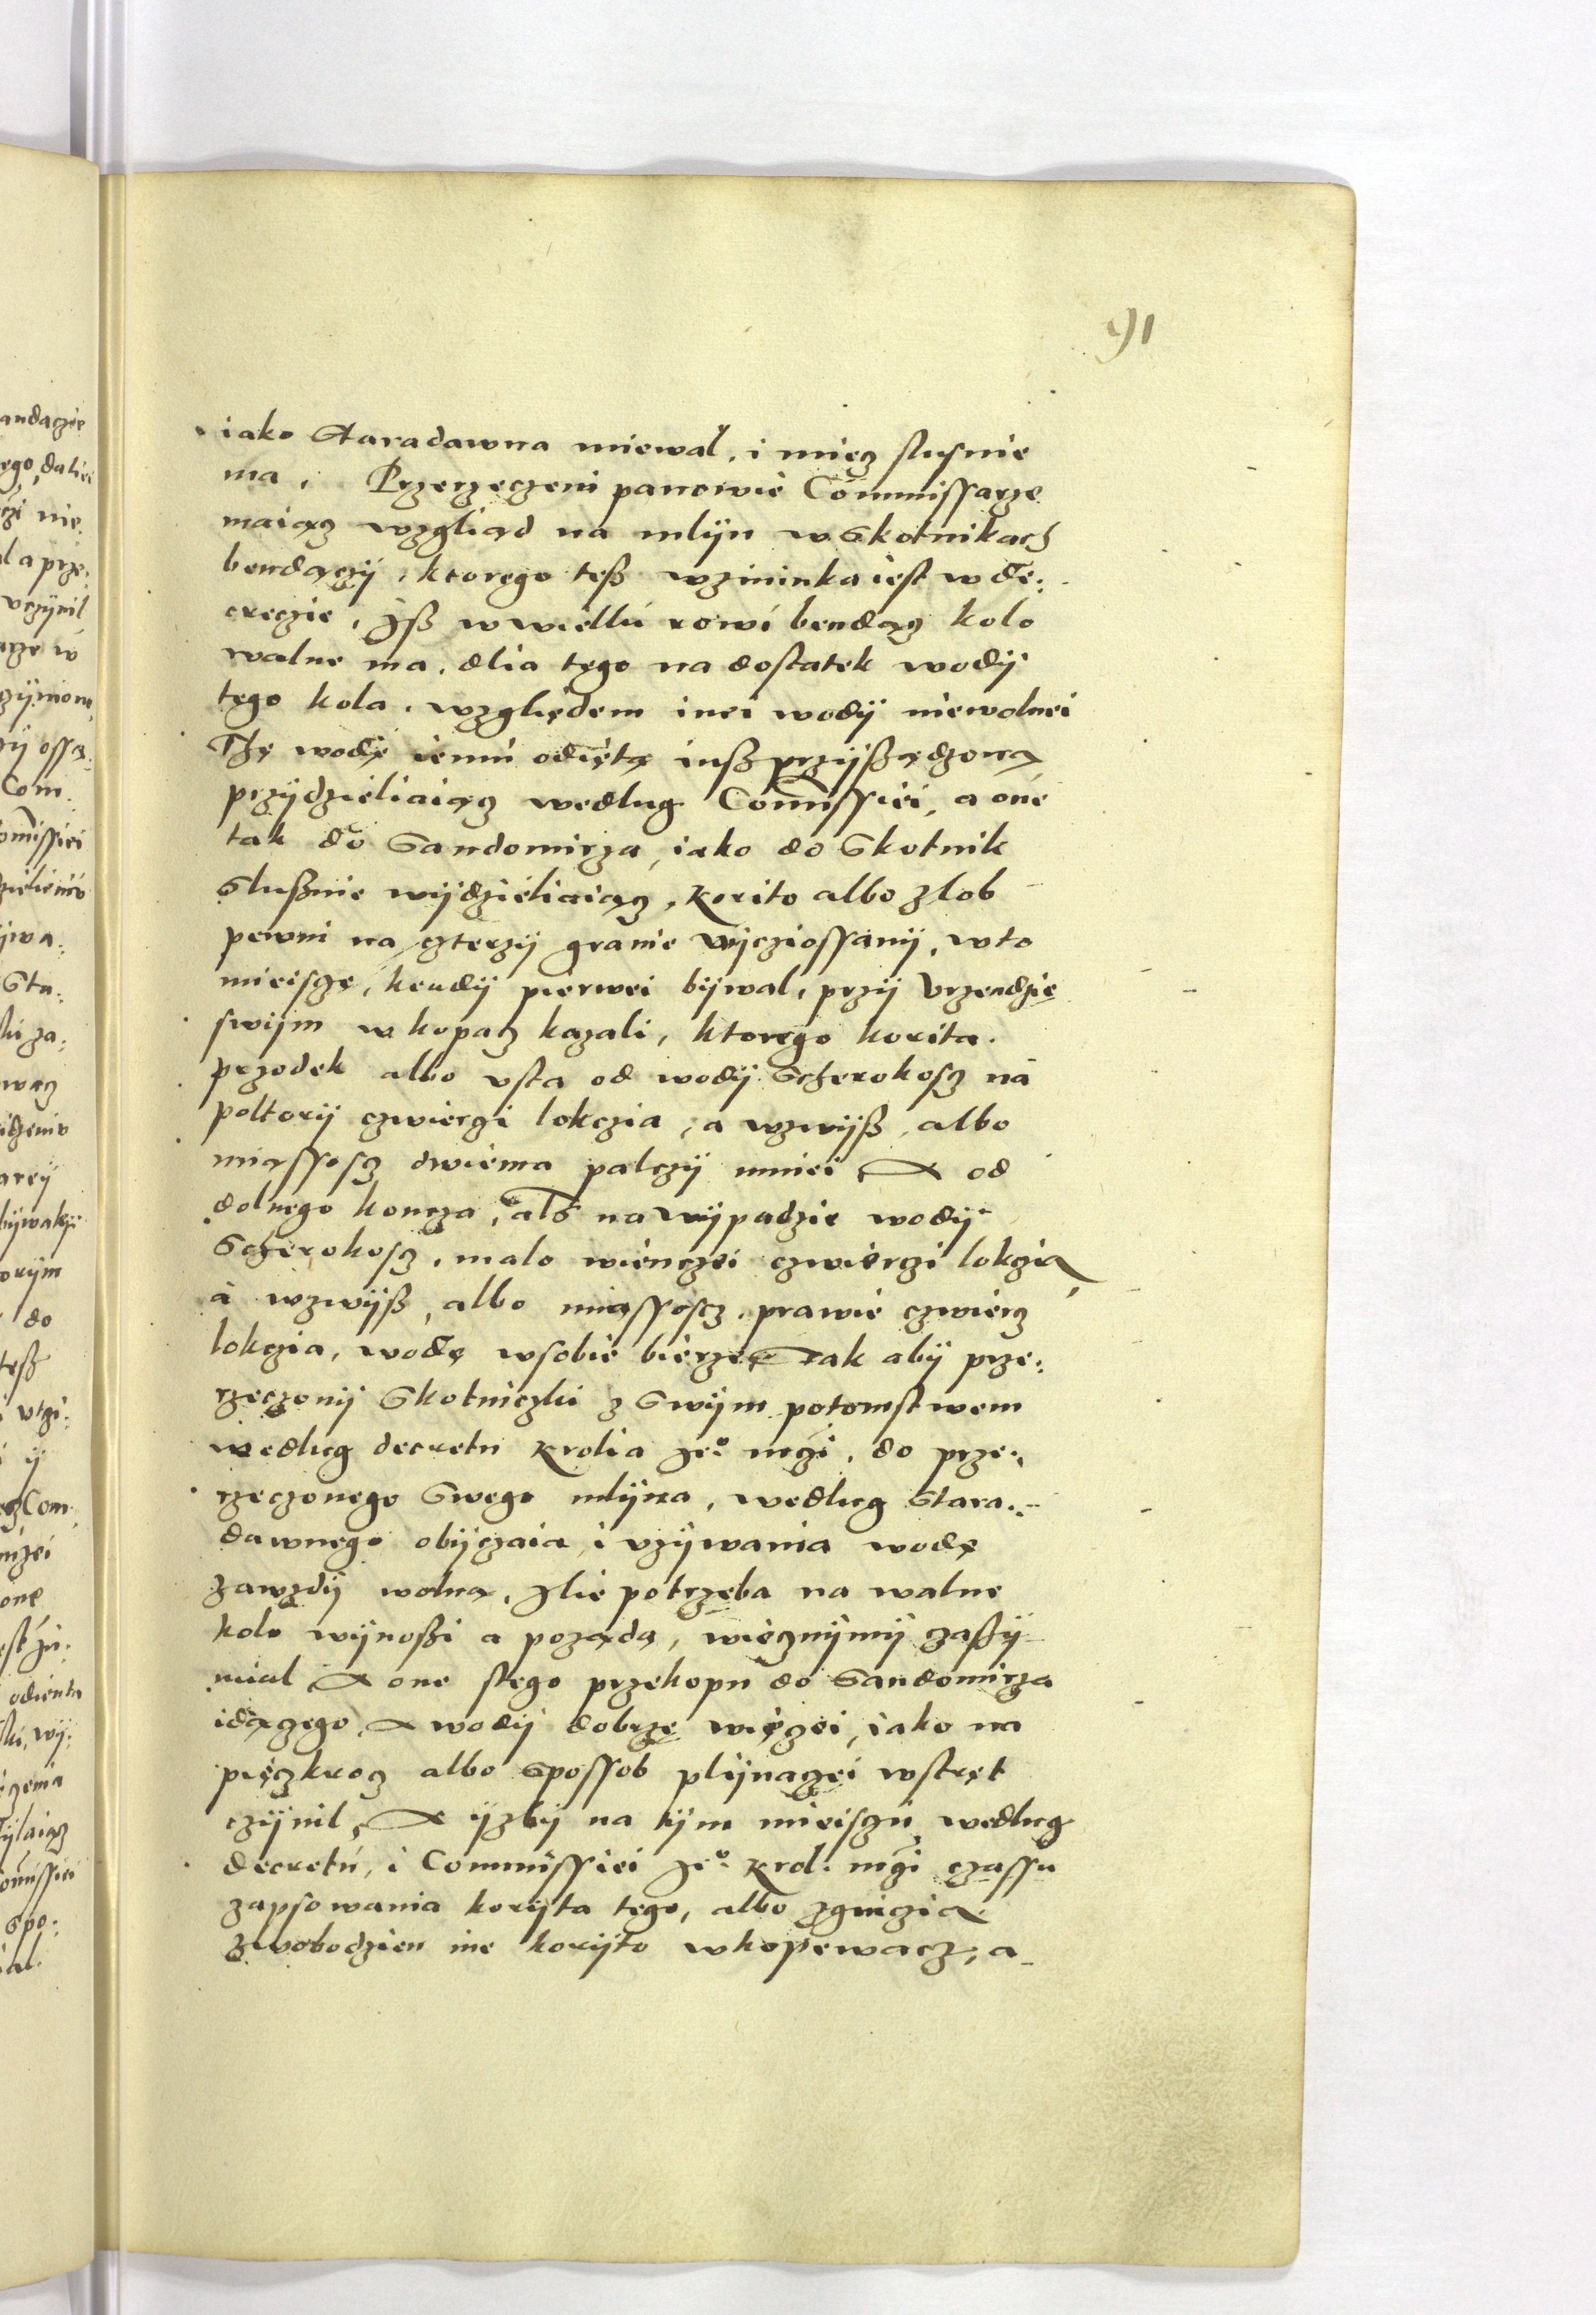 91
iako Staradawna miewal, i miecz slusnie
ma. Przerzeczeni panowie Commissarze
maiącz wzgliąd na mlijn w Skotnikach
bendączij, ktorego teß wzminka iest w de:
creczie, Jß w wiellú rowi bendącz kolo
walne ma, dlia tego na dostatek wodij
tego kola, względem inei wodij niewolnei
Thę wodę iemú odiętą iuß przijßądzoną
przijdzieliaiącz wedlug Commissiei, a one
tak do Sandomirza, iako do Skotnik
Slußnie wijdzieliaiącz, korito albo zlob
pewni na czterzij granie wijcziossanij, w to
mieiscze, kendij pierwei bijwal, przij Vrzendzie
swijm w kopacz kazali, ktorego korita
przodek albo vsta od wodij Scherokoscz na
poltorij czwierczi lokczia, a wzwijß, albo
miąssoscz dwiema palczij mniei A od
dolnego koncza, als na wijpadzie wodij
Scherokoscz, malo wienczei czwierczi lokczia
a wzwijß, albo miąssoscz, prawie czwiercz
lokczia, wodę wsobie bierze Tak abij prze:
rzeczonij Skotniczki z Swijm potomstwem
wedlug decretu Krolia Je° mczi, do prze:
rzeczonego Swego mlijna, wedlug Stara:
dawnego obijczaia i vzijwania wodę
zawzdij wolną, Jlie potrzeba na walne
kolo wijnoßi a poząda, wiecznijmij czaßij
mial A one stego przekopu do Sandomirza
idączego, A wodij dobrze więczei, iako na
pięczkrocz albo Spossob plijnaczei wstręt
czijnil, A ijzbij na tijm mieisczu wedlug
decretú, i Commissiei Je° Krol: mczi czassu
zapsowania korijta tego, albo zgniczia
Zwobodzien ine korijto wkopewacz, a